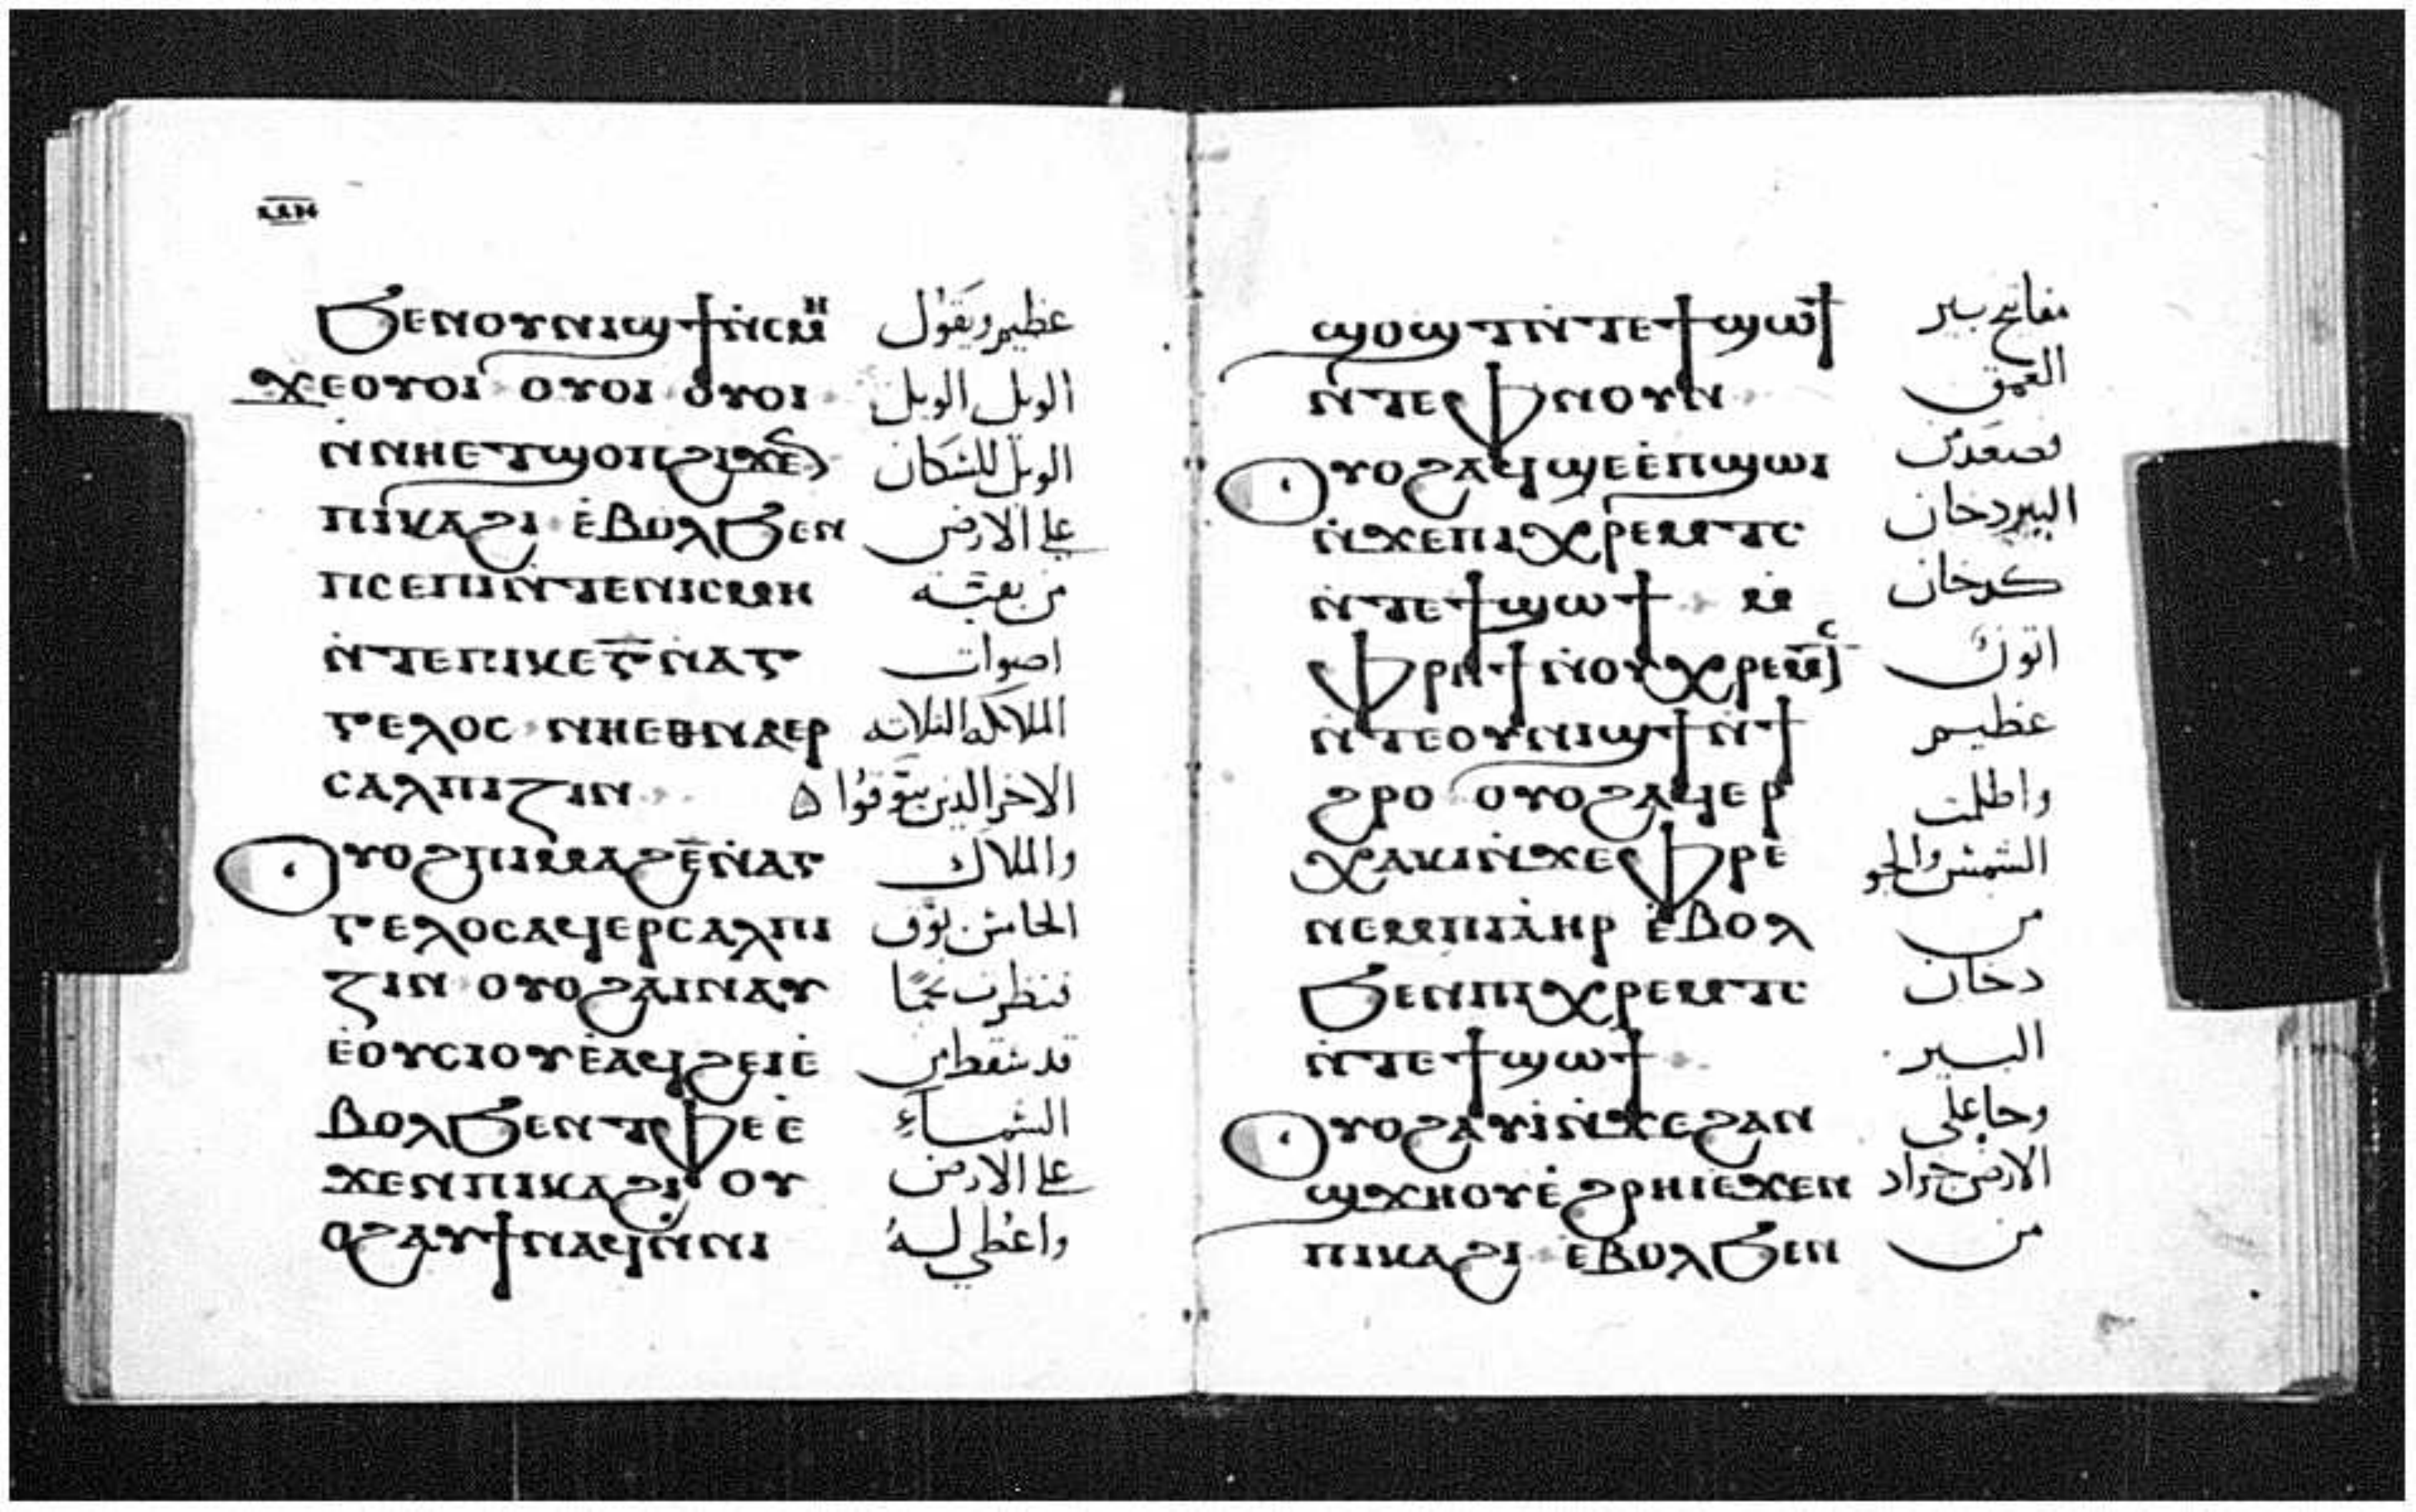 ⲙⲏ
ϧⲉⲛⲟⲩⲛⲓϣϯⲛ̇ⲥⲙⲏ عظيم ويقول
ϫⲉⲟⲩⲟⲓ ⲟⲩⲟⲓ ⲟⲩⲟⲓ الويل الويل
ⲛ̇ⲛⲏⲉⲧϣⲟⲡϩⲓϫⲉⲛ الويل للسكان
ⲡⲓⲕⲁϩⲓ ⲉ̇ⲃⲟⲗϧⲉⲛ علي الارض
ⲡⲥⲉⲡⲓⲛ̇ⲧⲉⲛⲓⲥⲙⲏ من بقية
ⲛ̇ⲧⲉⲡⲓⲕⲉⲅ̅ⲛ̇ⲁⲅ اصوات
ⲅⲉⲗⲟⲥ ⲛⲏⲉⲑⲛⲁⲉⲣ الملايكه الثلاته
ⲥⲁⲗⲡⲓⲍⲓⲛ الاخر الذين يبوقوا
ⲟⲩⲟϩⲡⲓⲙⲁϩⲉ̅ⲛ̇ⲁⲅ والملاك
ⲅⲉⲗⲟⲥⲁϥⲉⲣⲥⲁⲗⲡⲓ الخامس بوق
ⲍⲓⲛ ⲟⲩⲟϩⲁⲓⲛⲁⲩ فنظرت نجمًا
ⲉ̇ⲟⲩⲥⲓⲟⲩⲉ̇ⲁϥϩⲉⲓⲉ̇ قد سقط من
ⲃⲟⲗϧⲉⲛⲧⲫⲉⲉ̇ السماء
ϫⲉⲛⲡⲓⲕⲁϩⲓ ⲟⲩ علي الارض
ⲟϩⲁⲩϯⲛⲁϥⲛ̇ⲛⲓ واعطي له
ϣⲟϣⲧⲛ̇ⲧⲉϯϣⲱϯ مفاتيح بير
ⲛ̇ⲧⲉⲫⲛⲟⲩⲛ العمق
ⲟⲩⲟϩⲁϥϣⲉⲉ̇ⲡϣⲱⲓ فصعد من
ⲛ̇ϫⲉⲡⲓⲭⲣⲉⲙⲧⲥ البير دخان
ⲛ̇ⲧⲉϯϣⲱϯ ⲙ̇ كدخان
ⲫⲣⲏϯⲛ̇ⲟⲩⲭⲣⲉⲙⲧⲥ اتون
ⲛ̇ⲧⲉⲟⲩⲛⲓϣϯⲛ̇ϯ عظيم
ϩⲣⲟ ⲟⲩⲟϩⲁϥⲉⲣ واظلمت
ⲭⲁⲕⲓⲛ̇ϫⲉⲫⲣⲉ الشمس والجو
ⲛⲉⲙⲡⲓⲁ̇ⲏⲣ ⲉ̇ⲃⲟⲗ من
ϧⲉⲛⲡⲓⲭⲣⲉⲙⲧⲥ دخان
ⲛ̇ⲧⲉϯϣⲱϯ البير
ⲟⲩⲟϩⲁⲩⲓ̇ⲛ̇ϫⲉϩⲁⲛ وجا علي
ϣϫⲏⲟⲩⲉ̇ϩⲣⲏⲓⲉϫⲉⲛ الارض جراد
ⲡⲓⲕⲁϩⲓ ⲉ̇ⲃⲟⲗϧⲉⲛ من